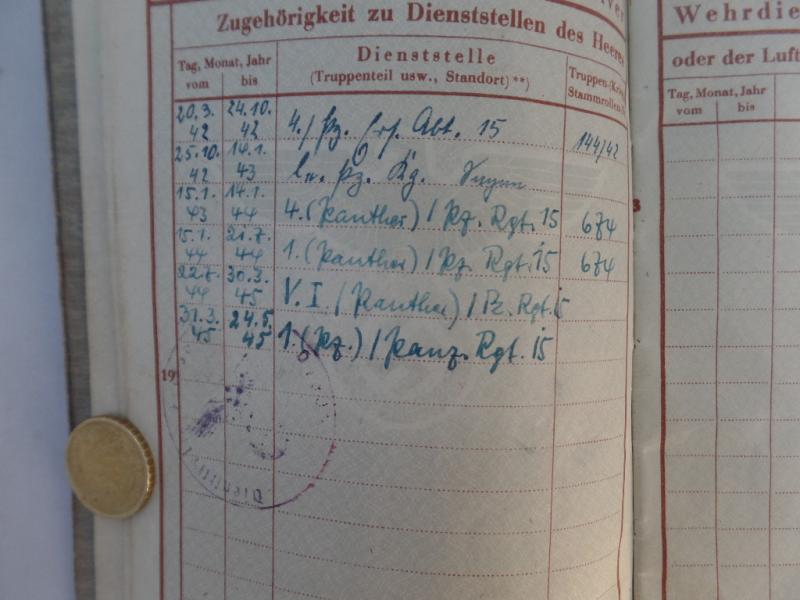 Zugehörigkeit zu Dienststellen des Heeres
Tag, Monat, Jahr
vom bis
Dienststelle
(Truppenteil usw., Standort) **)
Truppen-
Stammrollen
20.3. 24.10.
42 42 4./ Pz. Abt. 15 144/42
25.10. 14.1.
42 43 Pz.
15.1. 14.1.
43 44 4. (Panther) / Pz. Rgt. 15 674
15.1. 21.7.
44 44 1. (Panther) / Pz. Rgt. 15 674
22.7. 30.3.
44 45 V. I. (Panther) / Pz. Rgt. 15
31.3. 24.5.
45 45 1. (Pz.) / Panz. Rgt. 15
19
Wehrdie
oder der Luft
Tag, Monat, Jahr
vom bis
3